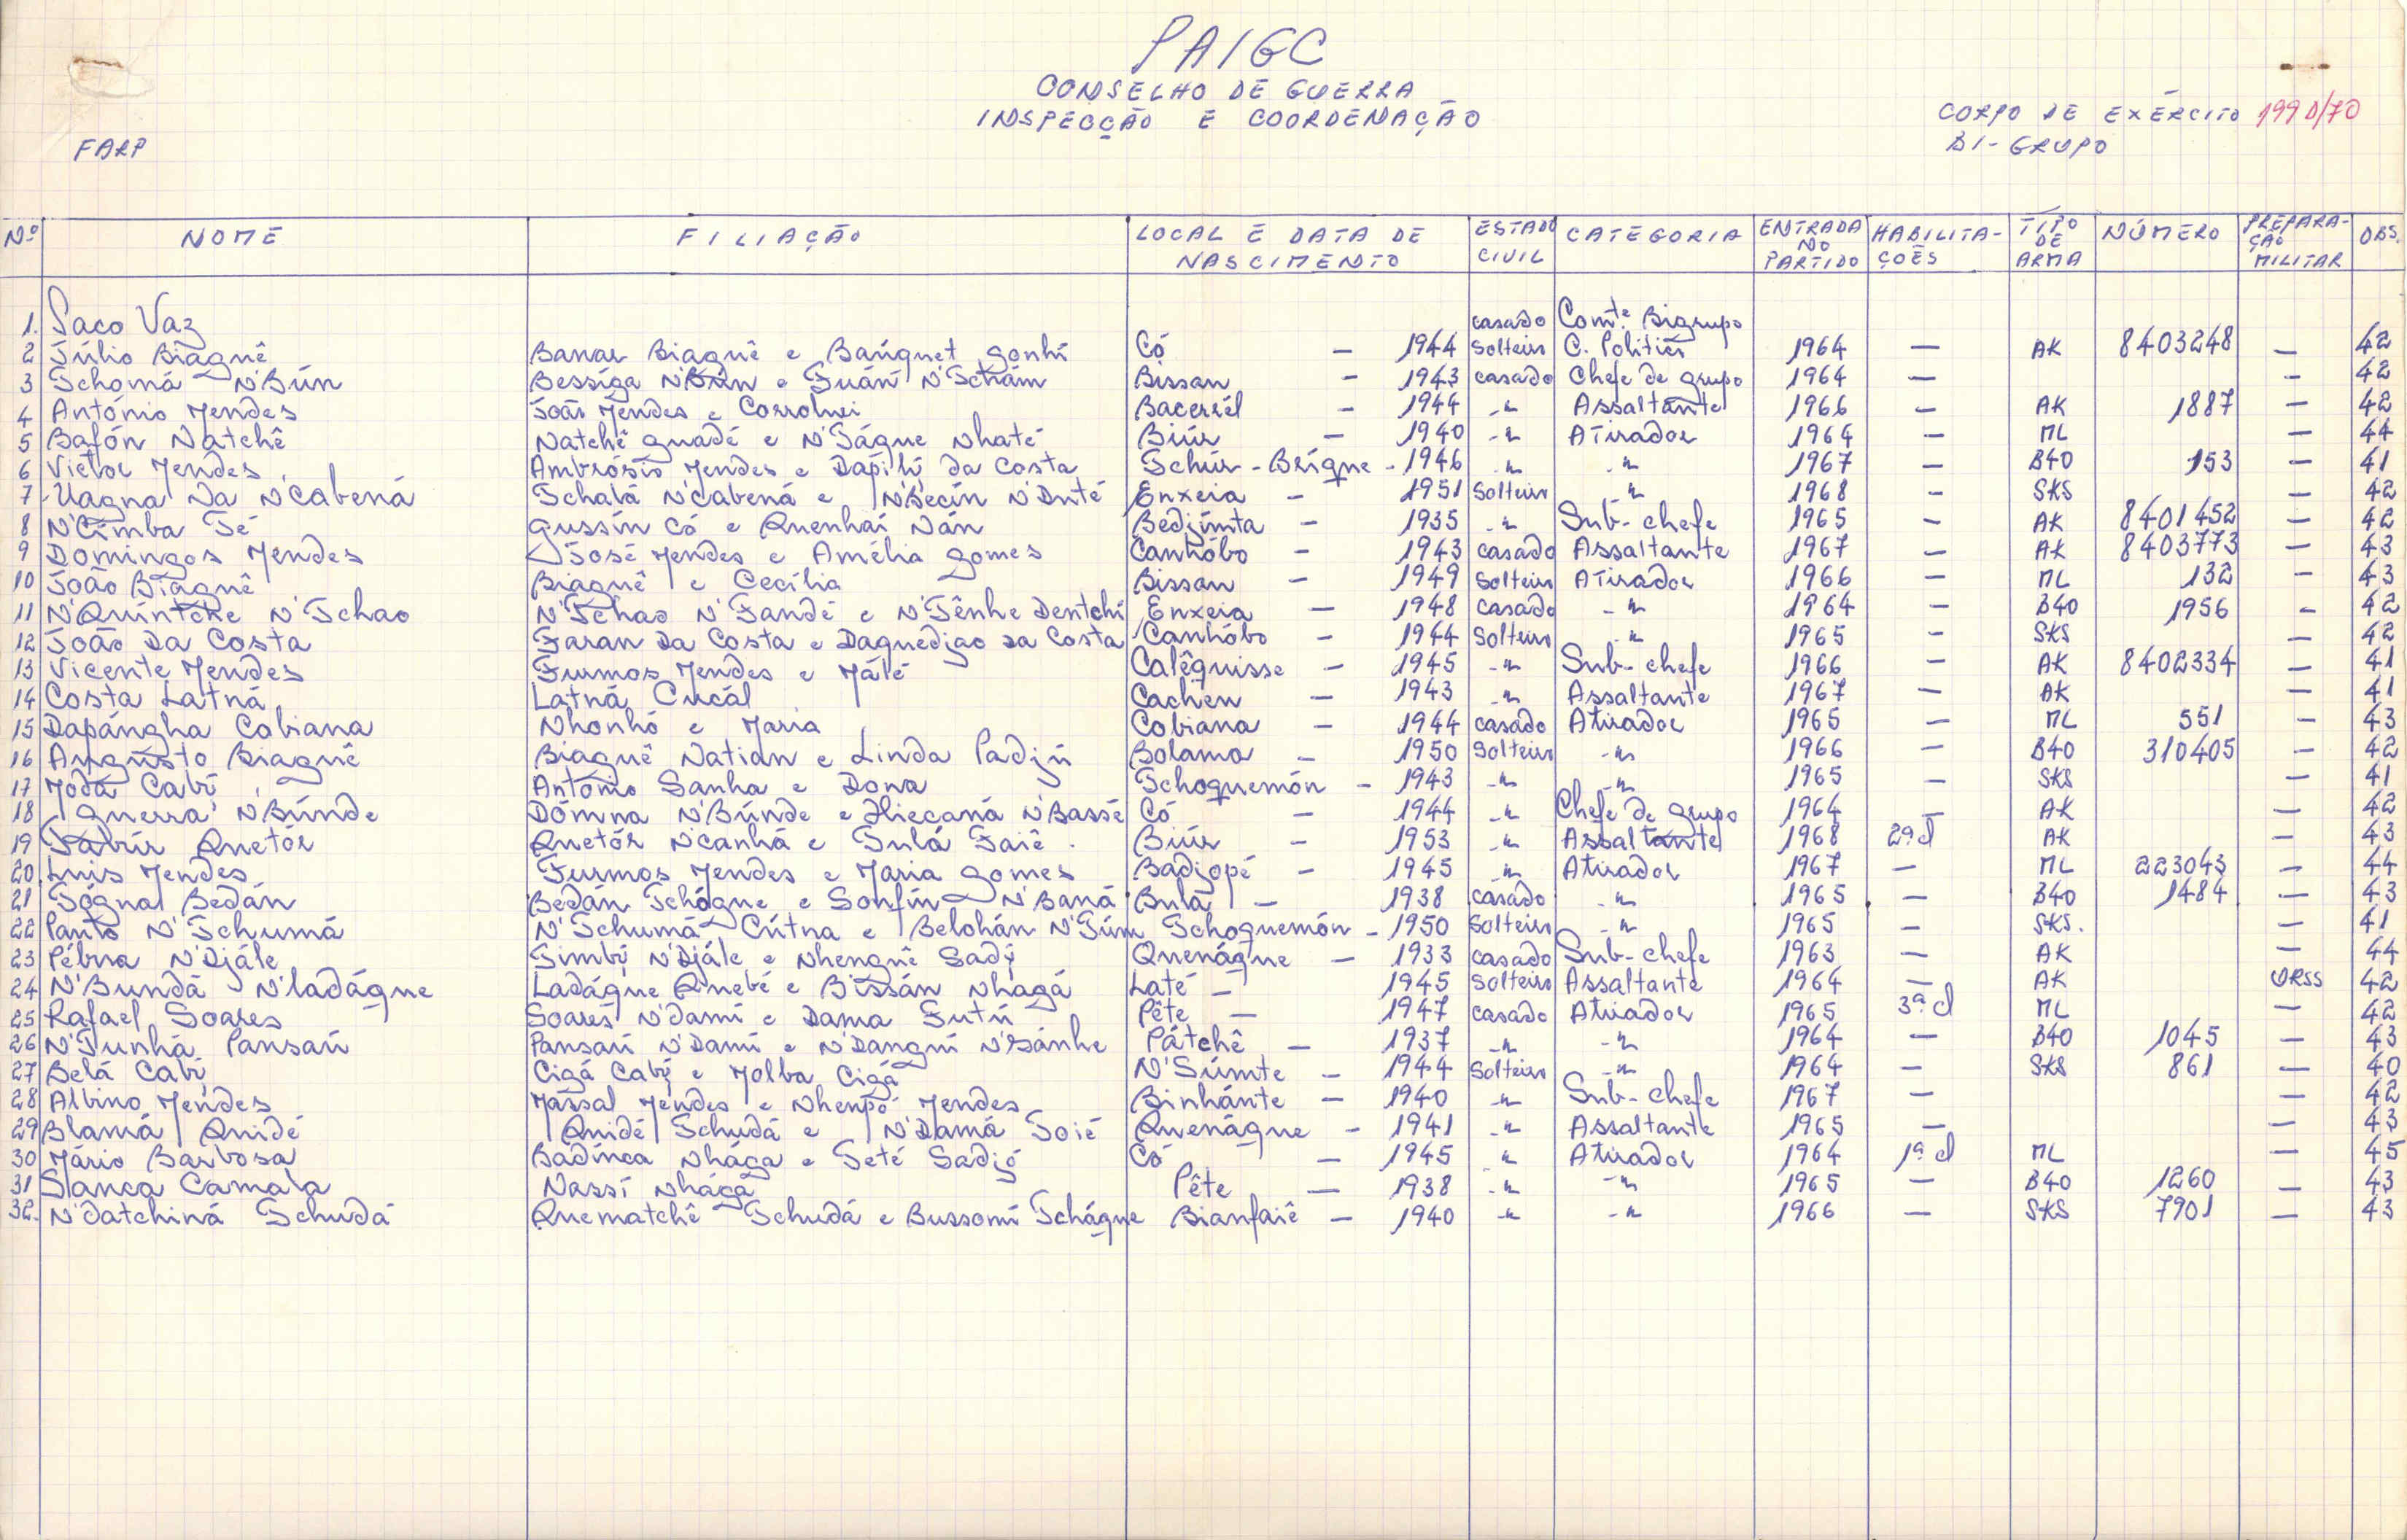 PAIGC
CONSELHO DE GUERRA
INSPECÇÃO E COORDENAÇÃO
CORPO DE EXÉRCITO 199D/70
BI-GRUPO
FARP
Nº NOME FILIAÇÃO LOCAL E DATA DE NASCIMENTO ESTADO CIVIL CATEGORIA ENTRADA NO PARTIDO HABILITAÇÕES TIPO DE ARMA NÚMERO PREPARAÇÃO MILITAR OBS.
1. Paco Vaz casado Comte. Bigrupo
2 Júlio Biaguê Banar Biaguê e Baúquet Gonhí Có — 1944 Solteiro C. Político 1964 — AK 8403248 — 42
3 Tchomá N'Bún Bessiga N'Bún e Tuán N'Tchám Bissan — 1943 casado Chefe de grupo 1964 — — 42
4 António Mendes João Mendes e Corrolwei Bacerrél — 1944 -"- Assaltante 1966 — AK 1887 — 42
5 Bafón Natchê Natchê Guadé e N'Págue Nhaté Biúr — 1940 -"- Atirador 1964 — ML — 44
6 Victor Mendes Ambrósio Mendes e Dápilí da Costa Tchúr-Brique - 1946 -"- -"- 1967 — B40 153 — 41
7 Uagna Na N'Cabená Tchalá N'Cabená e N'Becín N'Dnté Enxeia — 1951 Solteiro -"- 1968 — SKS — 42
8 N'Cimba Té Gussín Có e Quenhaí Nán Bedjimta — 1935 -"- Sub-chefe 1965 — AK 8401452 — 42
9 Domingos Mendes José Mendes e Amélia Gomes Canhóbo — 1943 casado Assaltante 1967 — AK 8403773 — 43
10 João Biaguê Biaguê e Cecília Bissan — 1949 Solteiro Atirador 1966 — ML 132 — 43
11 N'Quíntche N'Tchao N'Tchao N'Fandé e N'Tênhe Dentchí Enxeia — 1948 casado -"- 1964 — B40 1956 — 42
12 João Da Costa Faran Da Costa e Daguedjao da Costa Canhóbo — 1944 Solteiro -"- 1965 — SKS — 42
13 Vicente Mendes Furmos Mendes e Málé Calêquisse — 1945 -"- Sub-chefe 1966 — AK 8402334 — 41
14 Costa Latná Latná Cucál Cacheu — 1943 -"- Assaltante 1967 — AK — 41
15 Dapángha Cobiana Nhonhó e Maria Cobiana — 1944 casado Atirador 1965 — ML 551 — 43
16 Augusto Biaguê Biaguê Natian e Linda Padjú Bolama — 1950 Solteiro -"- 1966 — B40 310405 — 42
17 Modá Cabí António Sanha e Dona Tchoquemón — 1943 -"- -"- 1965 — SKS — 41
18 Guerra N'Búnde Dómna N'Búnde e N'Bassé Có — 1944 -"- Chefe de grupo 1964 — AK — 42
19 Fabúr Quetór Quetór N'canhá e Tulá Faiê Biúr — 1953 -"- Assaltante 1968 2ª cl AK — 43
20 Luís Mendes Furmos Mendes e Maria Gomes Badjopé — 1945 -"- Atirador 1967 — ML 223043 — 44
21 Tógna Bedán Bedán Tchógue e Sonfín N'Baná Bula — 1938 casado -"- 1965 — B40 1484 — 43
22 Panto N'Tchumá N'Tchumá Cútna e Belohán N'Túm Tchoquemón - 1950 Solteiro -"- 1965 — SKS. — 41
23 Pébna N'Djále Timbý N'Djále e Nhenguê Sadý Quenágue — 1933 casado Sub-chefe 1963 — AK — 44
24 N'Bundâ N'ladágue Ladágue Quebé e Bissán Nhagá Laté — 1945 Solteiro Assaltante 1964 — AK URSS 42
25 Rafael Soares Soares N'dami e Dama Futú Pête — 1947 casado Atirador 1965 3ª cl ML — 42
26 N'Tunhá Pansaú Pansaú N'Dami e N'Dangui N'Sánhe Pátchê — 1937 -"- -"- 1964 — B40 1045 — 43
27 Belá Cabí Cigá Cabý e Molba Cigá N'Súmte — 1944 Solteiro -"- 1964 — SKS 861 — 40
28 Albino Mendes Massal Mendes e Nhenpó Mendes Binhánte — 1940 -"- Sub-chefe 1967 — — 42
29 Blamá Quidé Quidé Tchudá e N'Damá Toié Quenágue — 1941 -"- Assaltante 1965 — — 43
30 Mário Barbosa Badinca Nhága e Teté Sadjó Có — 1945 -"- Atirador 1964 1ª cl ML — 45
31 Sanca Camala Nassí Nhága Pête — 1938 -"- -"- 1965 — B40 1260 — 43
32. N'datchiná Tchudá Quematchê Tchudá e Bussomí Tchágue Bianfaiê — 1940 -"- -"- 1966 — SKS 7901 — 43